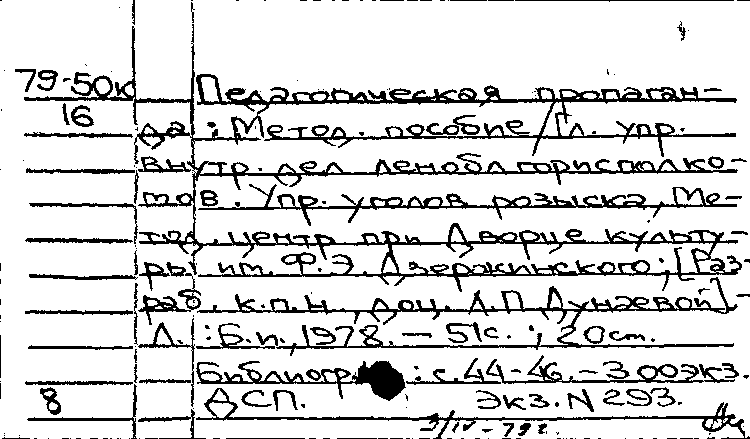 79-50к Педагогическая пропаган-
16 да : Метод. пособие / Гл. упр.
внутр. дел Леноблгорисполко-
мов. Упр. уголов. розыска, Ме-
тод. центр при Дворце культу-
ры им. Ф. Э. Дзержинского; [Раз-
раб. к.п.н., доц. Л.П. Дунаевой]. -
Л. : Б.и., 1978. — 51с. ; 20см.
Библиогр. : с.44-46. - 300экз.
8 ДСП. экз. N 293.
3/IV - 79г.